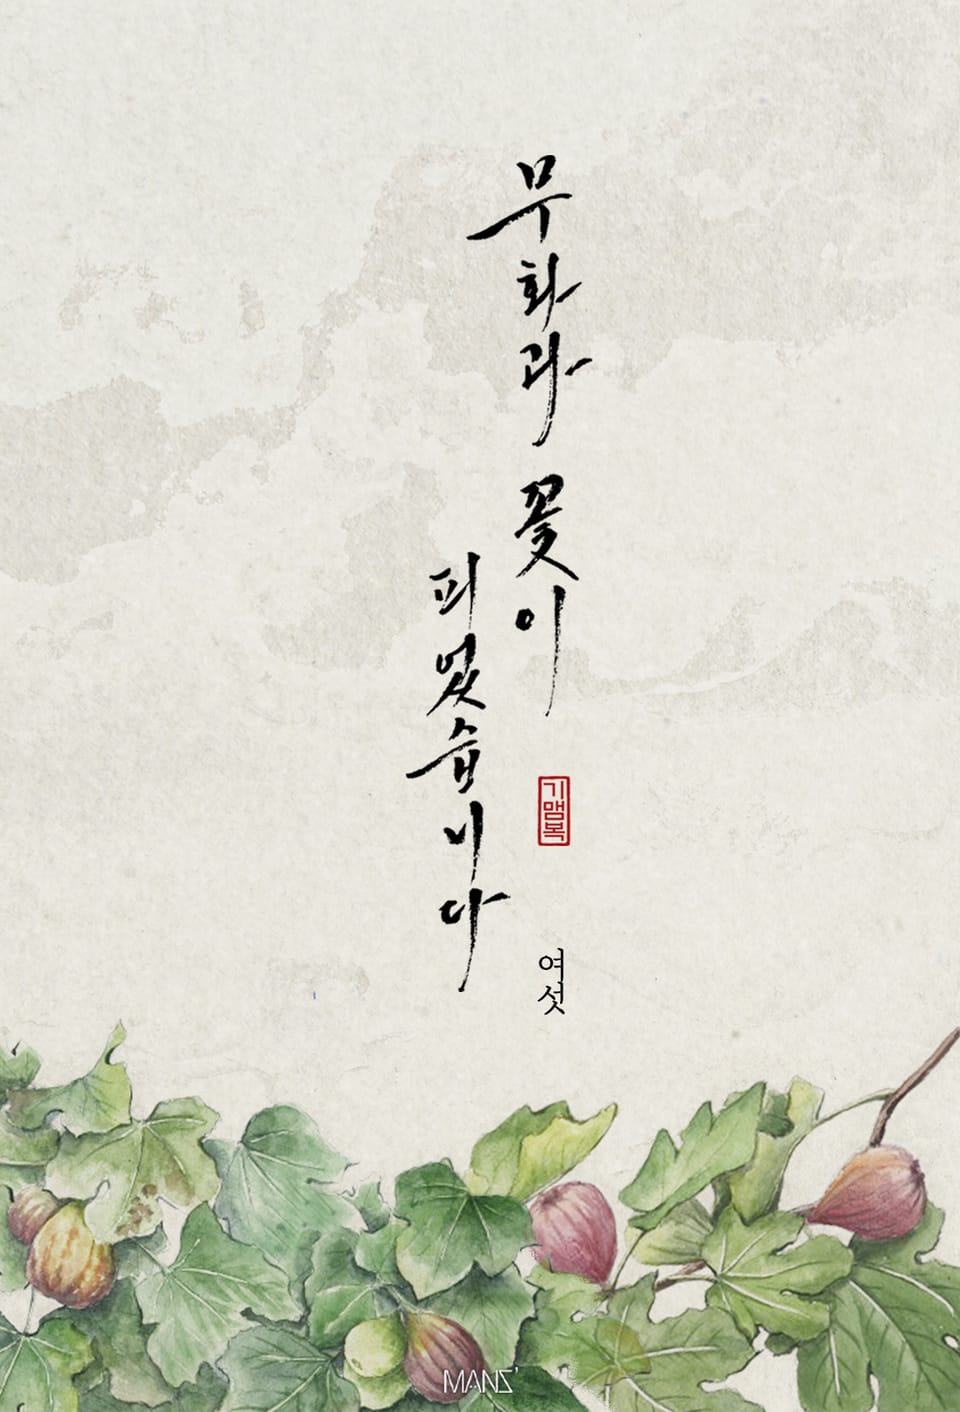 무화과 꽃이
피었습니다
기맴복
여섯
MANZ'